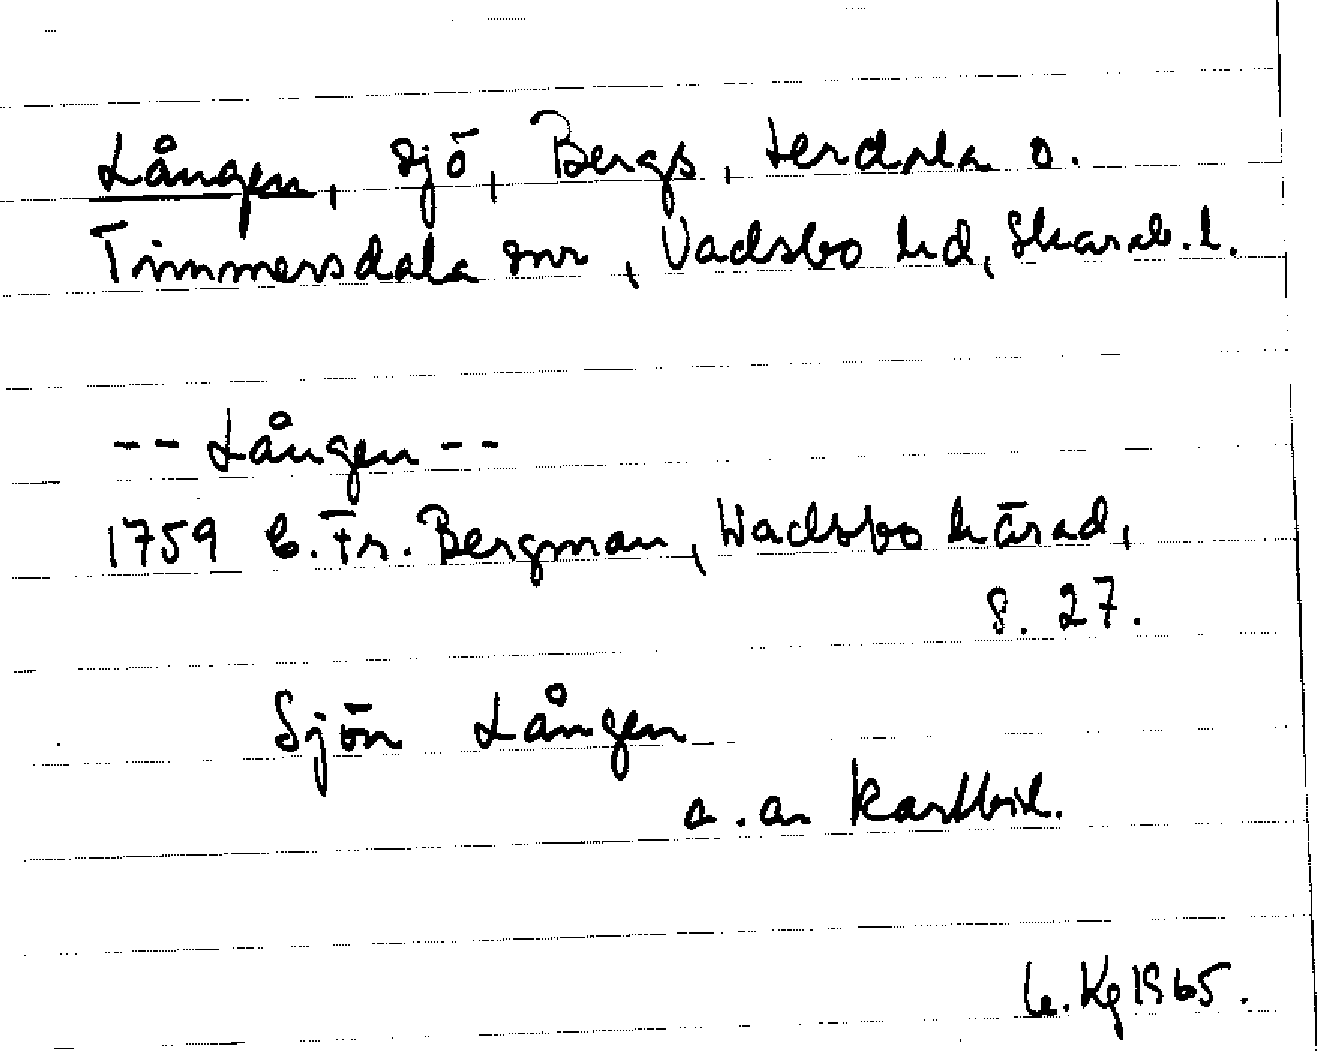 Lången, sjö, Bergs, Lerdala o.
Timmersdala snr, Vadsbo hd, Skarab. l.
-- Lången --
1759 C. Fr. Bergman, Wadsbo härad,
s. 27.
Sjön Lången
a. a. kartbil.
Kg 1965.